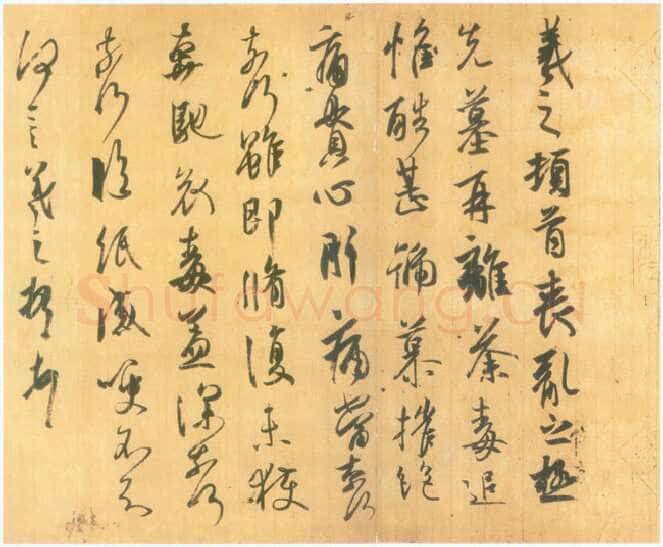 羲之頓首喪亂之極
先墓再離荼毒追
惟酷甚號慕摧絕
痛貫心肝痛當奈何
奈何雖即脩復未獲
奔馳哀毒益深奈何
奈何臨紙感哽不知
何言羲之頓首
Shufawang.CN